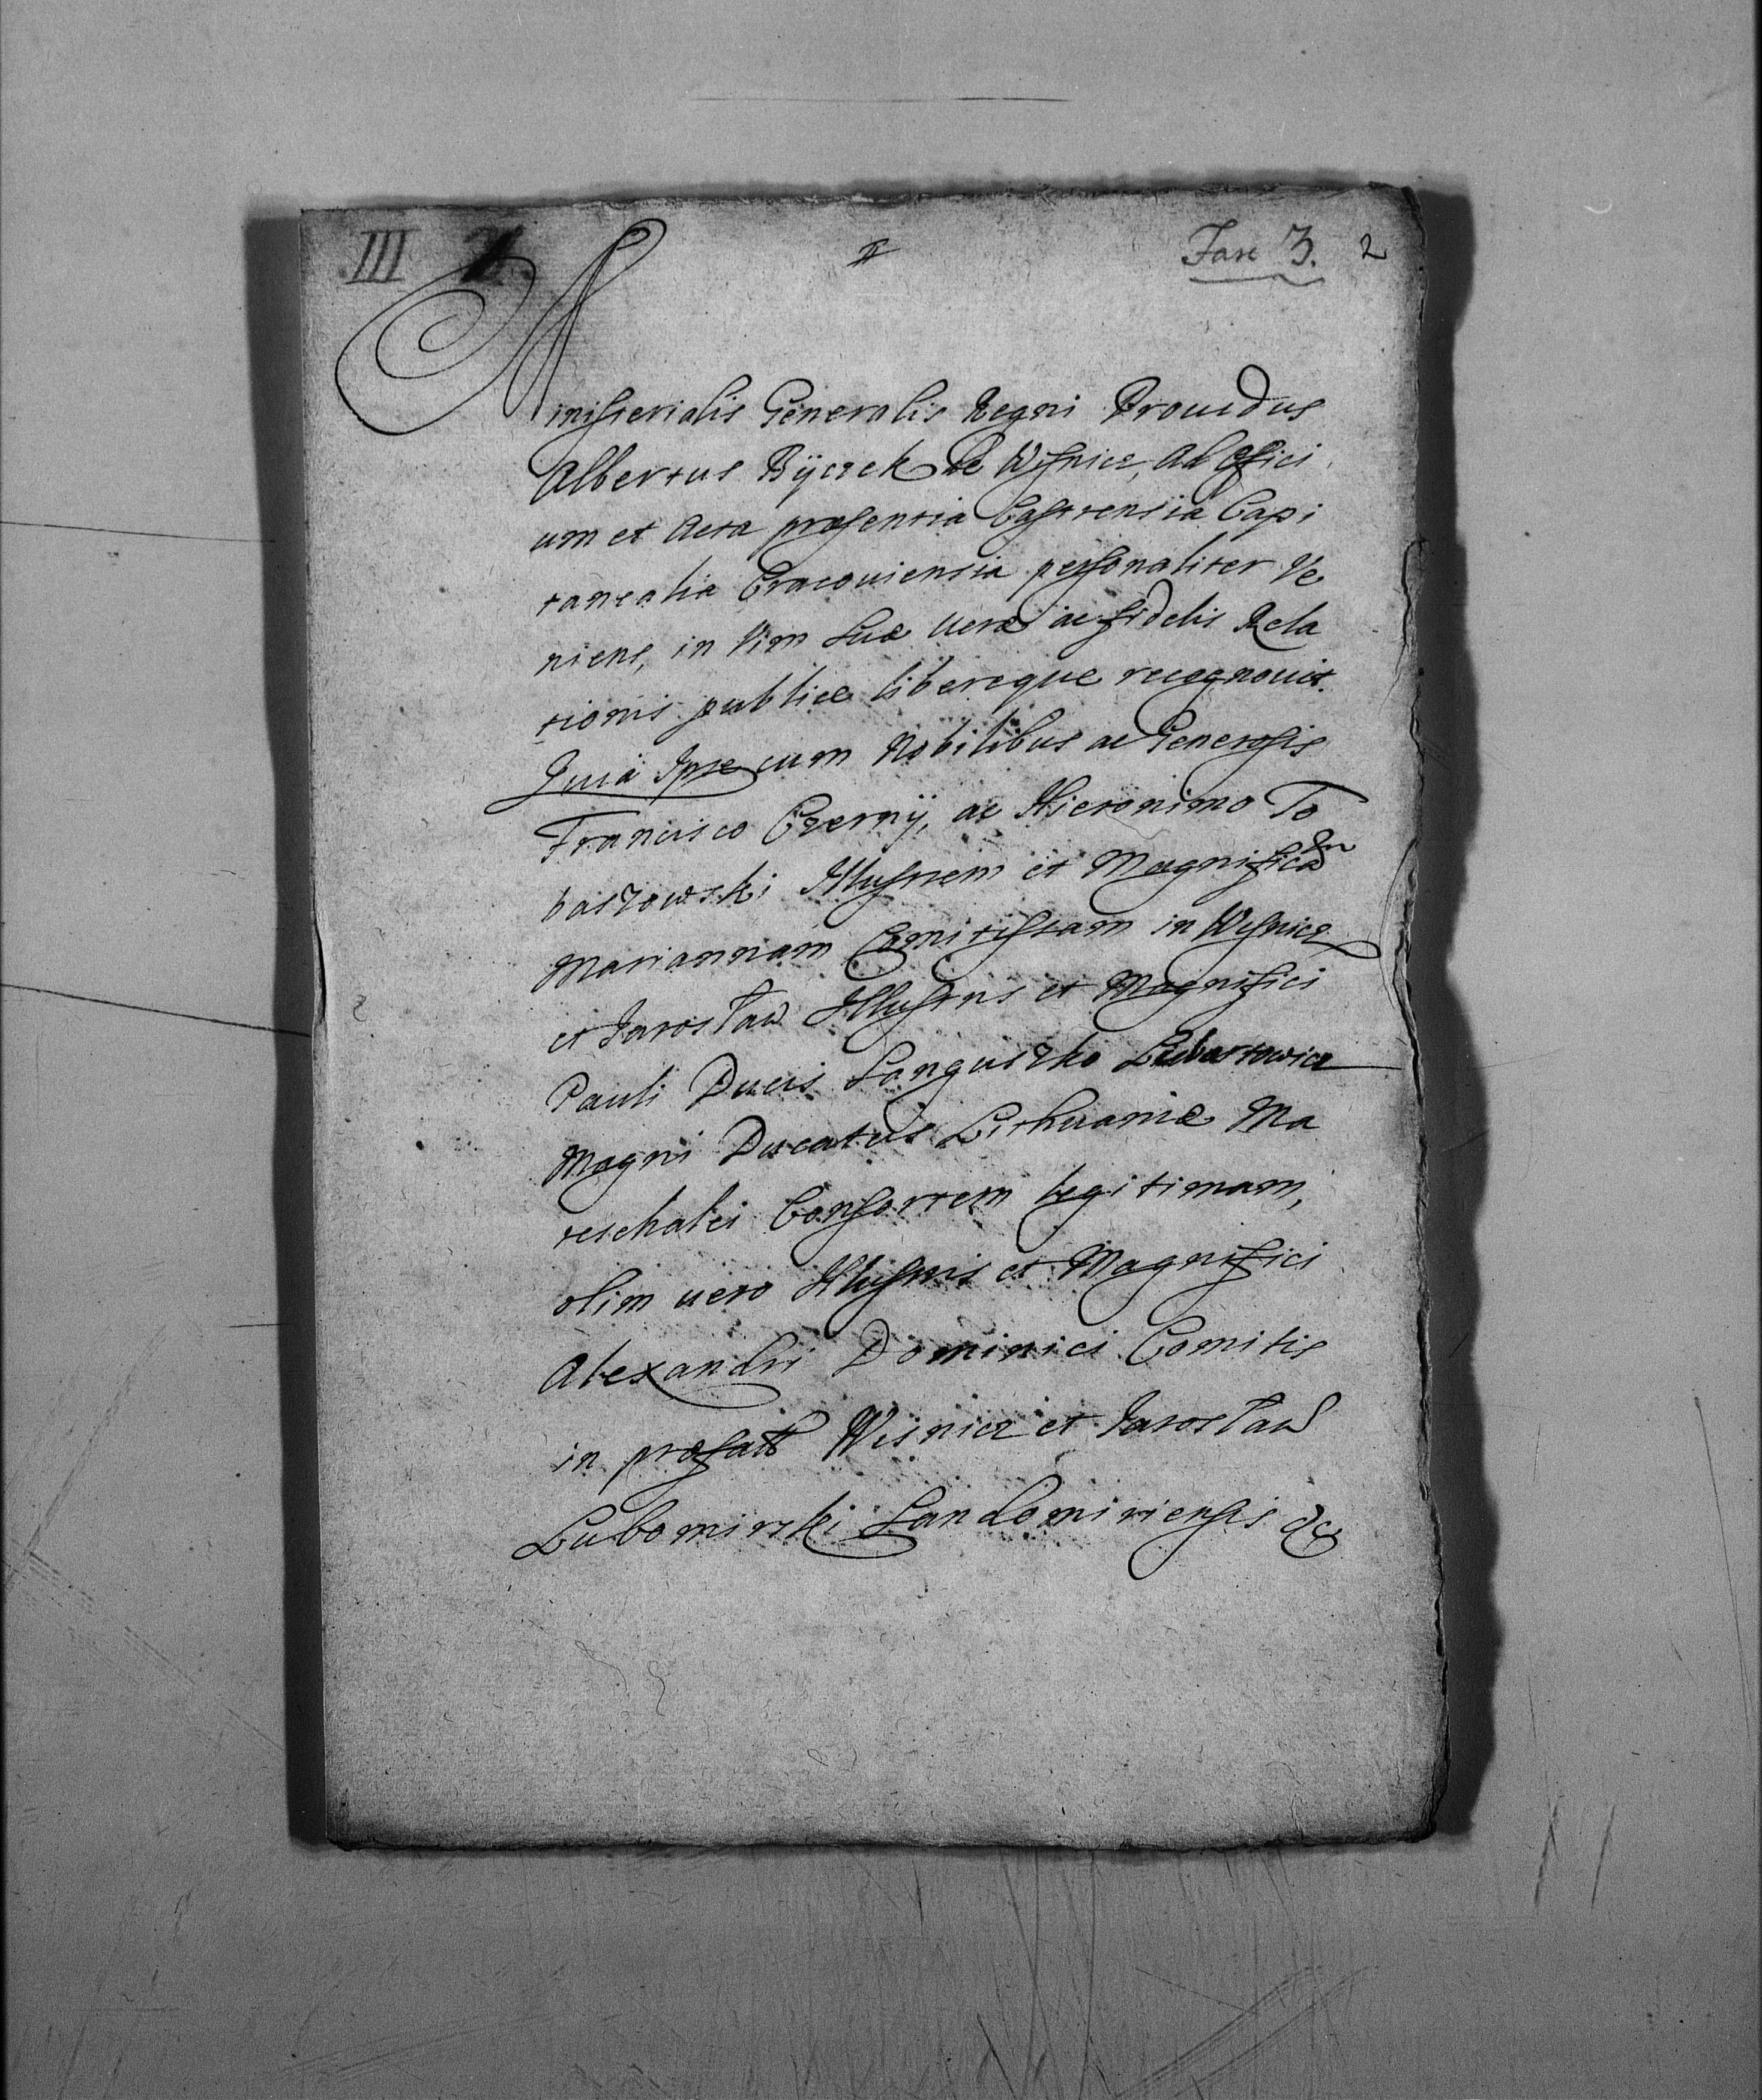 III
Fasc 3. 2
Ministerialis Generalis Regni Prouidus
Albertus Byczek de Wisnicz, ad Offici
um et Acta præsentia Castrensia Capi
tanealia Cracouiensia personaliter Ve
niens, in Vim suæ ueræ ac fidelis Rela
tionis publice libereque recognouit.
Quia Ipse cum Nobilibus ac Generosis
Francisco Czerny, ac Hieronimo To
baszowski Illustrem et Magnificam
Mariannam Comitissam in Wisnicz
et Jarosław Illustris et Magnifici
Pauli Ducis Sanguszko Lubartowicz
Magni Ducatus Lithuaniæ Ma
reschalci Consortem legitimam,
olim uero Illustris et Magnifici
Alexandri Dominici Comitis
in præfatt Wisnicz et Jarosław
Lubomirski Sandomiriensis &c